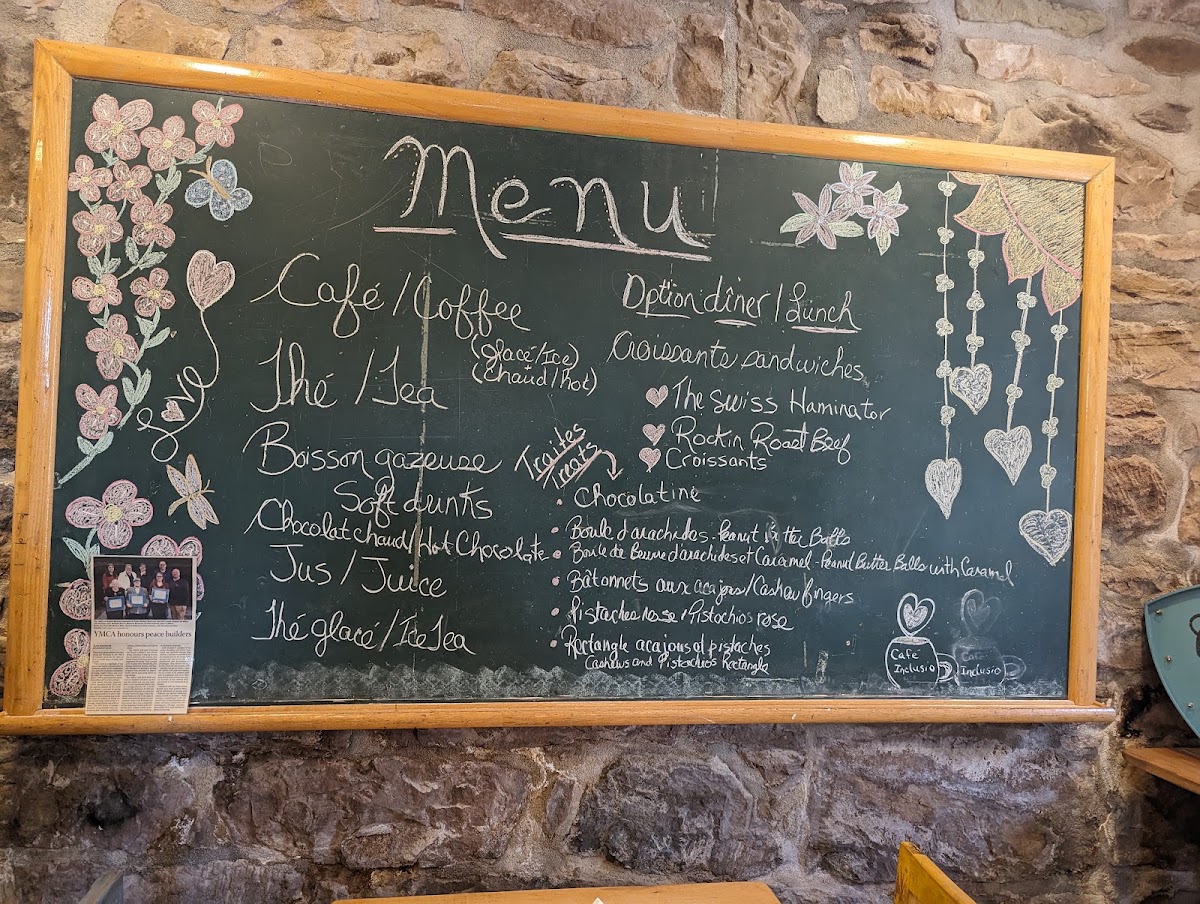 Menu
Love
Café / Coffee
(Glacé/Ice)
(Chaud/hot)
Thé / Tea
Boisson gazeuse
Soft drinks
Chocolat chaud/Hot Chocolate
Jus / Juice
Thé glacé / Ice Tea
Option dîner / Lunch
Croissants sandwiches
The Swiss Haminator
Rockin Roast Beef
Croissants
Traites
Treats
Chocolatine
Boule d'arachides - Peanut Butter Balls
Boule de Beurre d'arachides et Caramel - Peanut Butter Balls with Caramel
Bâtonnets aux acajous/Cashew fingers
Pistaches rose / Pistachios rose
Rectangle acajous et pistaches
Cashews and Pistachios Rectangle
Café
Inclusio
Café
Inclusio
YMCA honours peace builders